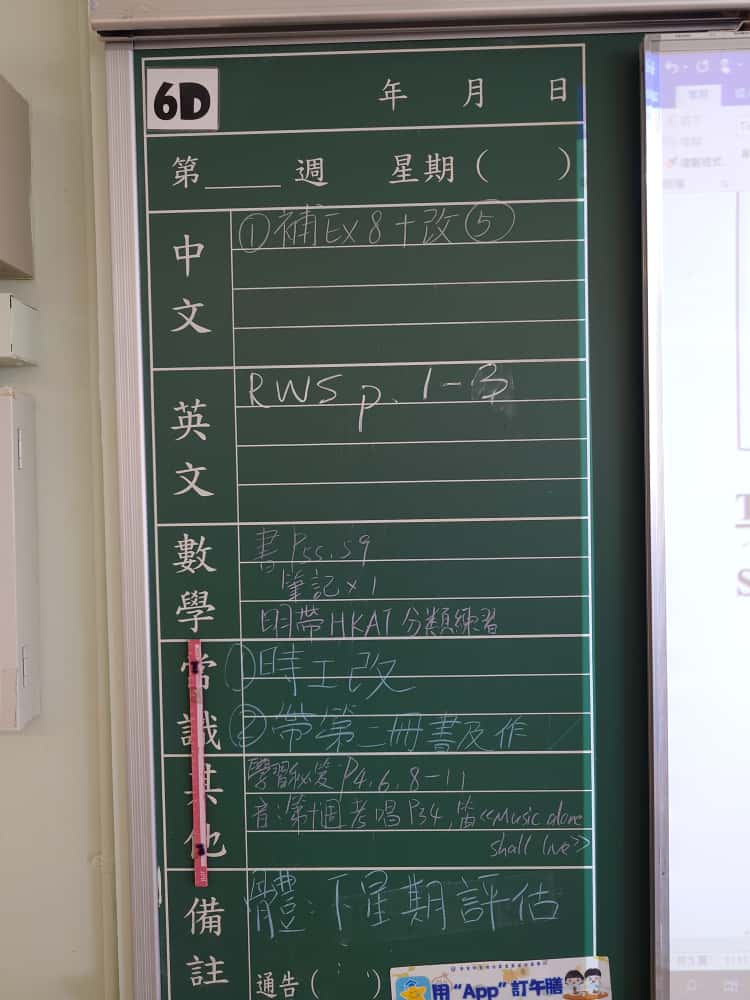 6D
年 月 日
第____週 星期( )
中文
①補Ex 8 + 改⑤
英文
RWS p. 1-3
數學
書 P55, 59
筆記 x 1
明帶 HKAT 分類練習
常識
①時工改
②帶第二冊書及作
其他
學習秘笈 P4, 6, 8-11
音:第十週考唱 P34, 笛 <<Music alone
shall live>>
備註
體:下星期評估
通告( )
用 “App” 訂午膳